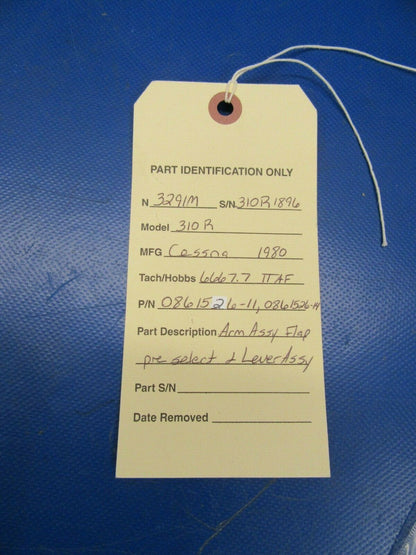 PART IDENTIFICATION ONLY
N 3291M S/N 310R1896
Model 310 R
MFG Cessna 1980
Tach/Hobbs 6667.7 TTAF
P/N 0861526-11, 0861526-14
Part Description Arm Assy Flap
pre select & Lever Assy
Part S/N
Date Removed